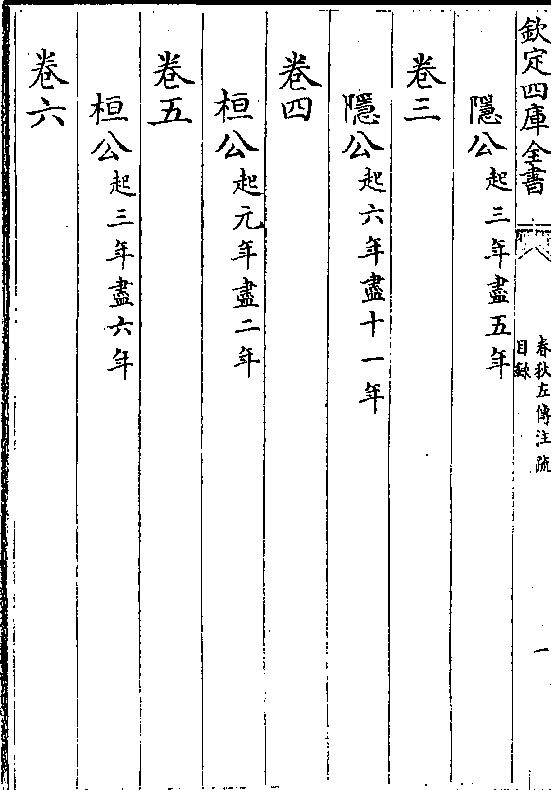 欽定四庫全書
春秋左傳注疏
目錄
一
隱公起三年盡五年
卷三
隱公起六年盡十一年
卷四
桓公起元年盡二年
卷五
桓公起三年盡六年
卷六